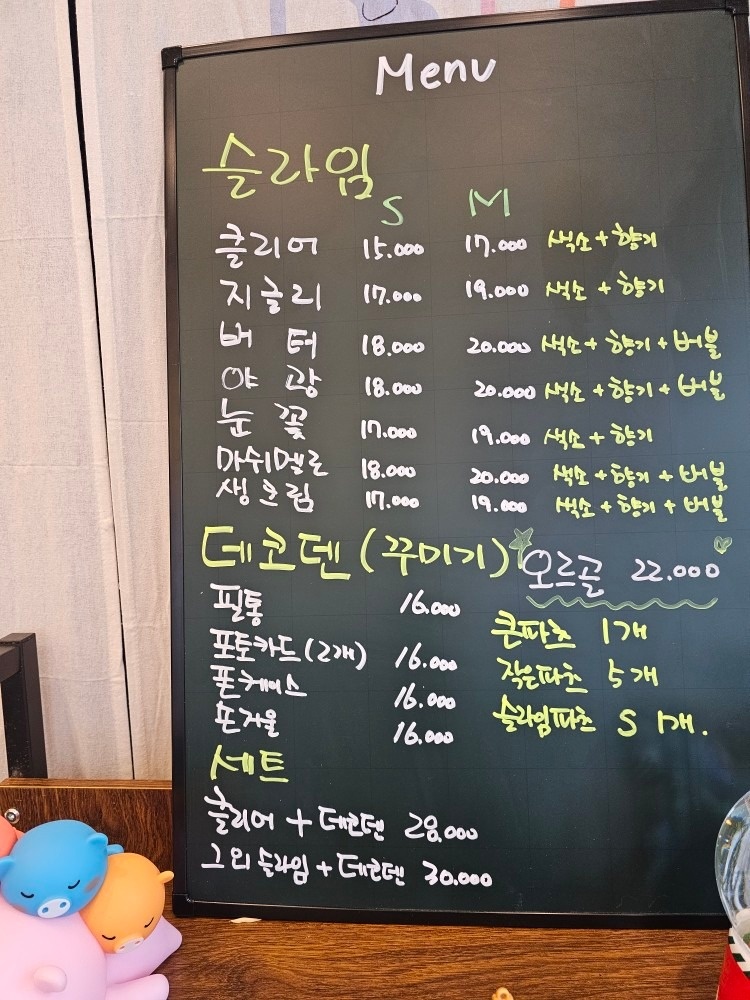 Menu
슬라임
S M
클리어 15.000 17.000 색소 + 향기
지글리 17.000 19.000 색소 + 향기
버터 18.000 20.000 색소 + 향기 + 버블
야광 18.000 20.000 색소 + 향기 + 버블
눈꽃 17.000 19.000 색소 + 향기
마쉬멜로 18.000 20.000 색소 + 향기 + 버블
생크림 17.000 19.000 색소 + 향기 + 버블
데코덴 (꾸미기) 오르골 22.000
필통 16.000 큰파츠 1개
포토카드 (2개) 16.000 작은파츠 5개
폰케이스 16.000 슬라임파츠 S 1개.
손거울 16.000
세트
클리어 + 데코덴 28.000
그 외 슬라임 + 데코덴 30.000